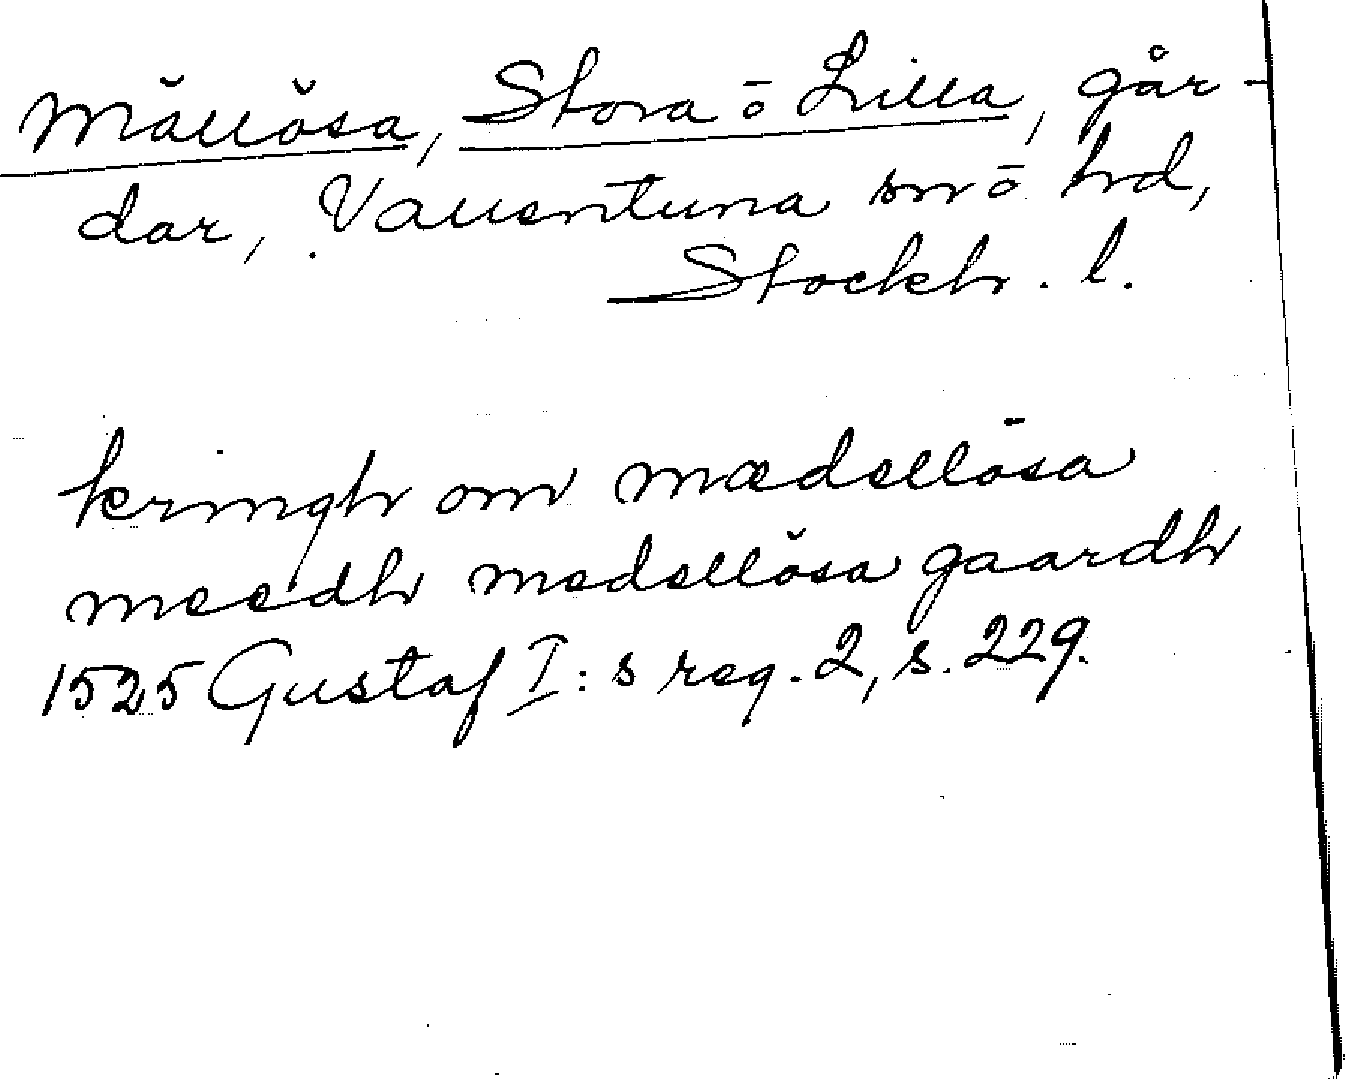 Mällösa, Stora o Lilla, går-
dar, Vallentuna sn o hd,
Stockh. l.
kringh om mædellösa
meedh medellösa gaardh
1525 Gustaf I:s reg. 2, s. 229.